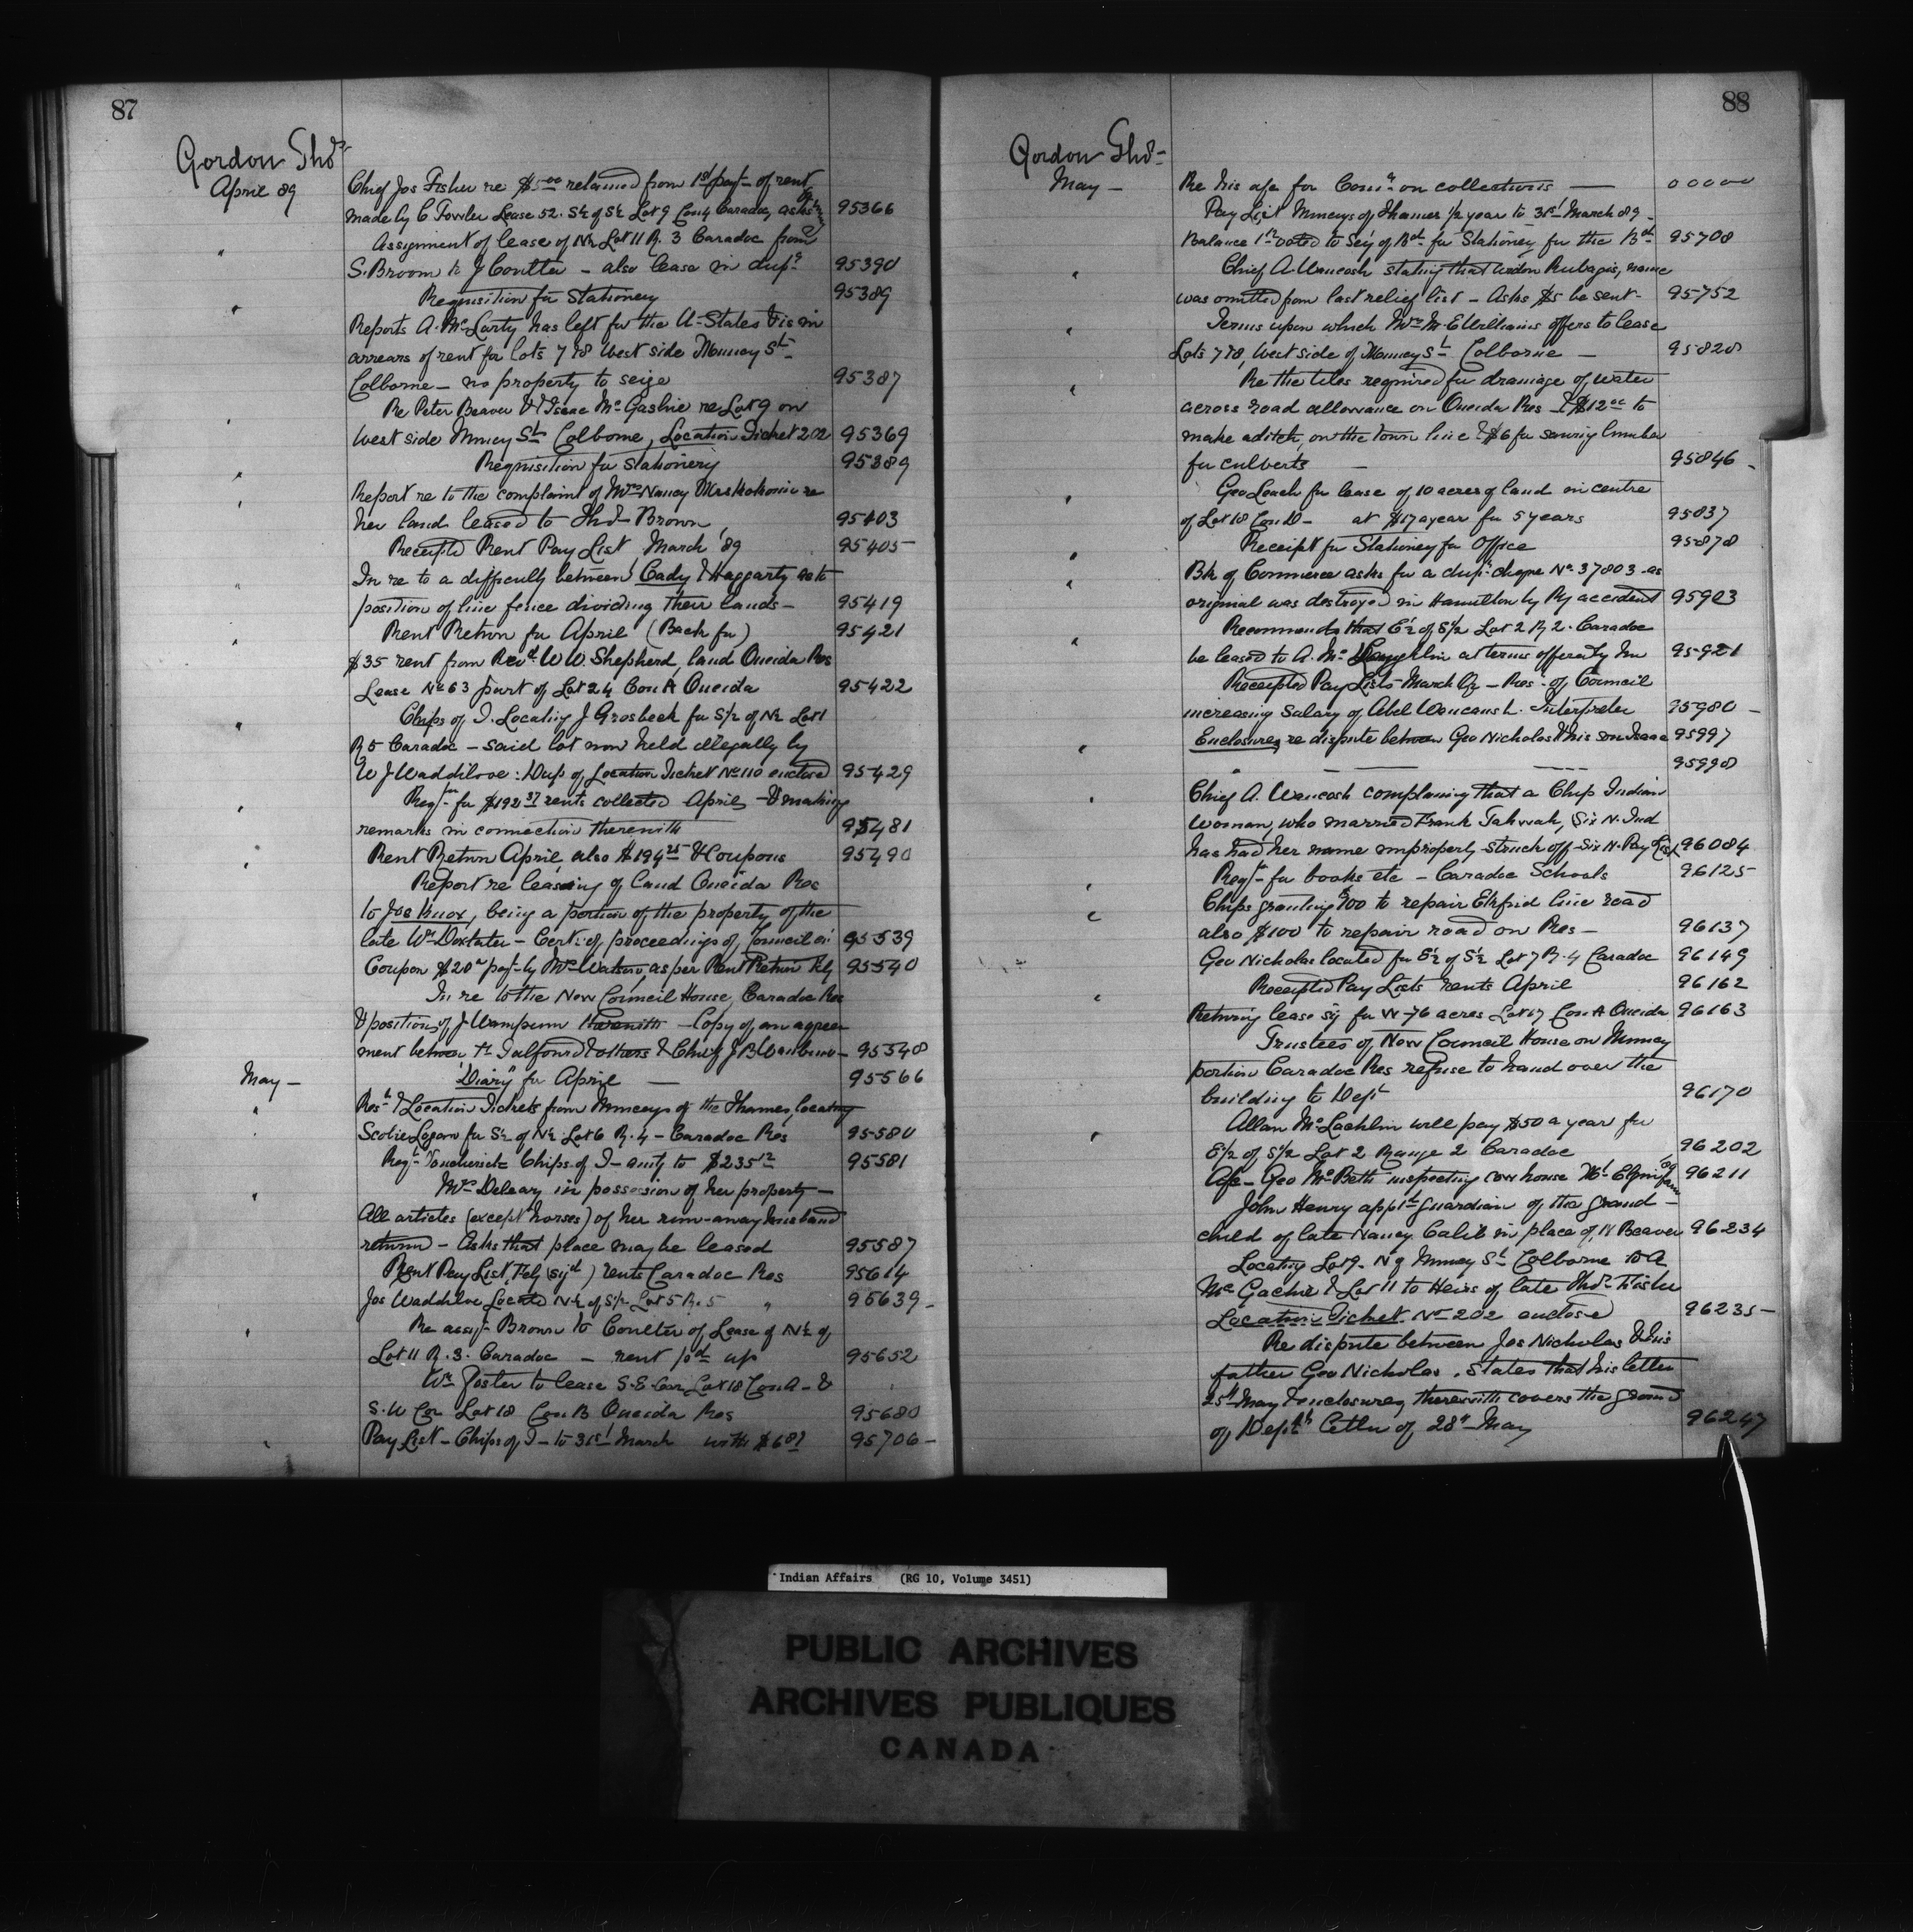 87
Gordon Thos
April 89
Chief Jos Fisher re $5.00 retained from 1st payt of rent
made by C Fowler Lease 52. S½ of S½ Lot 9 Con 4 Caradoc, asks 95366
Assignment of lease of N½ Lot 11 R. 3 Caradoc from
S. Broom to J Coulter - also lease in dupe 95390
Requisition for Stationery 95389
Reports A. McLarty has left for the U-States & is in
arrears of rent for lots 7 & 8 West side Muncey St
Colborne - no property to seize 95387
Re Peter Beaver & Isaac McGashie re Lot 9 on
West side Muncey St Colborne, Location Ticket 202 95369
Requisition for Stationery 95389
Report re to the complaint of Mrs Nancy re
her land leased to Thos Brown 95403
Receipted Rent Pay List March '89 95405
In re to a difficulty between Cady & Haggarty as to
position of line fence dividing their lands - 95419
Rent Return for April (Back for) 95421
$35 rent from Revd W W. Shepherd, land Oneida Res
Lease No 63 part of Lot 24 Con A Oneida 95422
Chips of T. Locating J Grosbeck for S½ of N½ Lot 1
R 5 Caradoc - said lot now held illegally by
W J Waddilove: Dup of Location Ticket No 110 enclosed 95429
Reqn for $192.37 rents collected April - & making
remarks in connection therewith 95481
Rent Return April also $194.25 & Coupons 95490
Report re leasing of land Oneida Res
to Joe Knox, being a portion of the property of the
late Wm Doxtater - Cert: of proceedings of Council on 95539
Coupon $20 payt by Mr Watson, as per Rent Return Feby 95540
In re to the New Council House, Caradoc Res
& position of J Wampum therewith - Copy of an agree
ment between Talfourd & others & Chief J B Wanbuno - 95548
May - "Diary" for April - 95566
Rest & Location Tickets from Munceys of the Thames, locating
Scobie Logan for S½ of N½ Lot 6 R. 4 - Caradoc Res 95580
Reqn Voucherick Chips of T - amtg to $235.12 95581
Mrs Deleary in possession of her property -
All articles (except horses) of her run-away husband
return - Asks that place may be leased 95587
Rent Pay List Feby (sigd) rents Caradoc Res 95614
Jos Waddilove Located N½ of S½ Lot 5 R. 5 " 95639 -
Re assigt Brown to Coulter of Lease of N½ of
Lot 11 R. 3. Caradoc - rent pd up 95652
Wm Foster to lease S. E Cor Lot 18 Con A - &
S. W Cor Lot 18 Con B Oneida Res 95680
Pay List - Chips of T - to 31st March with $6 95706 -
88
Gordon Thos -
May - Re his a/c for Comn on collections - 00000
Pay List Munceys of Thames ½ year to 31st March 89 -
Balance voted to Secy of Bd for Stationery for the Bd 95708
Chief A. Waucosh stating that name
was omitted from last relief list - Asks $5 be sent - 95752
Terms upon which Mrs M. E Williams offers to lease
Lots 7 & 8, West side of Muncey St Colborne - 95820
Re the tiles required for drainage of water
across road allowance on Oneida Res - & $12.00 to
make a ditch, on the town line & $6 for sawing lumber
for culverts - 95846 -
Geo Leach for lease of 10 acres of land in centre
of Lot 18 Con D - at $17 a year for 5 years 95837
Receipt for Stationery for Office 95878
Bk of Commerce asks for a dup: cheque No. 37803 - as
original was destroyed in Hamilton by Ry accident 95903
Recommends that E½ of S½ Lot 2 R 2. Caradoc
be leased to A. McLaughlin at terms offered by him 95921
Receipted Pay Lists March Qr - Res: of Council
increasing Salary of Abel Waucaush. Interpreter 95980 -
Enclosures re dispute between Geo Nicholas & his son Isaac 95997
" - - - 95998
Chief A. Waucosh complaining that a Chip Indian
Woman, who married Frank Tahwah, Six N. Ind
has had her name improperly struck off Six N. Pay List 96084
Reqn for books etc - Caradoc Schools 96125
Chips granting $100 to repair Ekfrid line road
also $100 to repair road on Res - 96137
Geo Nicholas located for E½ of S½ Lot 7 R. 4 Caradoc 96149
Receipted Pay Lists rents April 96162
Returning lease sig for W - 76 acres Lot 17 Con A Oneida 96163
Trustees of New Council House on Muncey
portion Caradoc Res refuse to hand over the
building to Dept 96170
Allan McLachlin will pay $50 a year for
E½ of S½ Lot 2 Range 2 Caradoc 96202
A/c - Geo McBeth inspecting cow house Mt Elgin farm 96211
John Henry appt guardian of the grand -
child of late Nancy Calib in place of N Beaver 96234
Locating Lot 9. N of Muncey St Colborne to A
McGachie & Lot 11 to Heirs of late Thos Fisher
Location Ticket No 202 enclosed 96235 -
Re dispute between Jos Nicholas & his
father Geo Nicholas. States that his letter
25th May & enclosures therewith covers the ground
of Depts letter of 28th May 96247
Indian Affairs (RG 10, Volume 3451)
PUBLIC ARCHIVES
ARCHIVES PUBLIQUES
CANADA